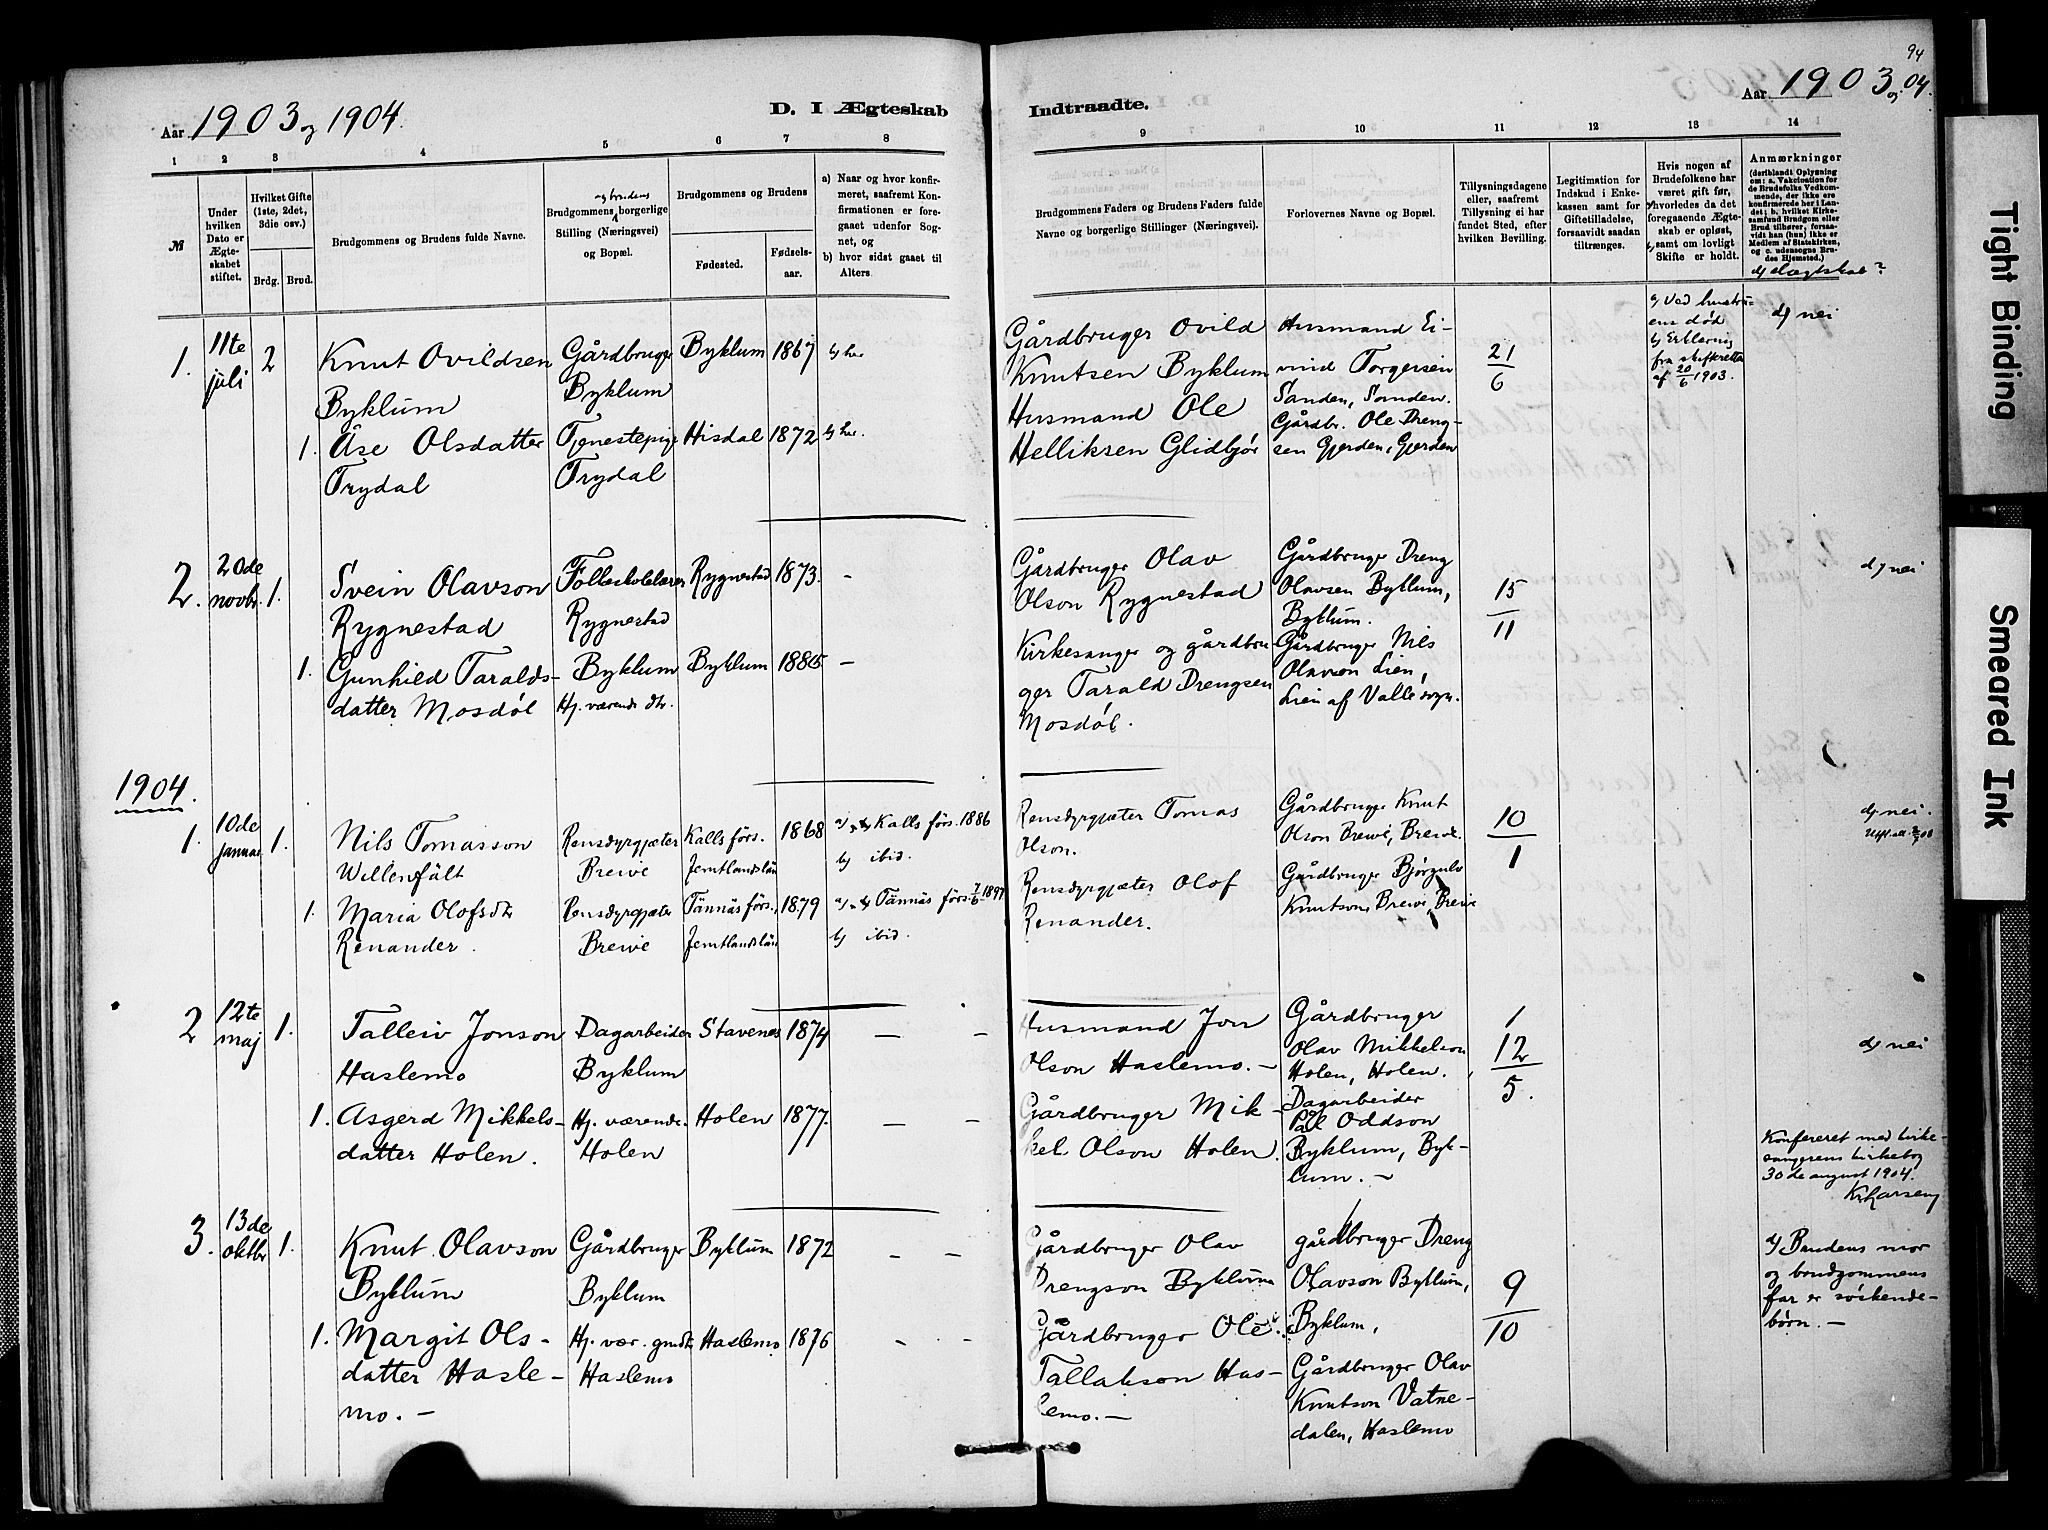 94
Aar 1903 og 1904.
D. I Ægteskab
Indtraadte.
Aar 1903 og 04.
1 2 3 4 5 6 7 8
9 10 11 12 13 14
№
Under hvilken Dato er Ægteskabet stiftet.
Hvilket Gifte (1ste, 2det, 3die osv.)
Brdg. Brud.
Brudgommens og Brudens fulde Navne.
Brudgommens og brudens borgerlige Stilling (Næringsvei) og Bopæl.
Brudgommens og Brudens
Fødested.
Fødselsaar.
a) Naar og hvor konfirmeret, saafremt Konfirmationen er foregaaet udenfor Sognet, og
b) hvor sidst gaaet til Alters.
Brudgommens Faders og Brudens Faders fulde Navne og borgerlige Stillinger (Næringsvei).
Forlovernes Navne og Bopæl.
Tillysningsdagene eller, saafremt Tillysning ei har fundet Sted, efter hvilken Bevilling.
Legitimation for Indskud i Enkekassen samt for Giftetilladelse, forsaavidt saadan tiltrænges.
Hvis nogen af Brudefolkene har været gift før, hvorledes da det foregaaende Ægteskab er opløst, samt om lovligt Skifte er holdt.
Anmærkninger (deriblandt Oplysning om: a. Vakcination for de Brudefolks Vedkommende, der ikke ere konfirmerede her i Landet; b. hvilket Kirkesamfund Brudgom eller Brud tilhører, forsaavidt han (hun) ikke er Medlem af Statskirken, og c. udensogns Brudes Hjemsted.)
d) slægtskab?
1. 11te juli 2
Knut Ovildsen Byklum
Gårdbruger Byklum
Byklum 1867 b) her
Gårdbruger Ovild Knutsen Byklum
Husmand Eivind Torgersen Sanden, Sanden.
21/6
a) Ved hustruens død
b) Erklæring fra skifteretten af 20/6 1903.
d) nei
1. Åse Olsdatter Trydal
Tjenestepige Trydal
Hisdal 1872 b) her.
Husmand Ole Helliksen Glidbjør
Gårdbr. Ole Drengsen Gjerden, Gjerden
2. 20de novbr. 1.
Svein Olavson Rygnestad
Folkeskolelærer Rygnestad
Rygnestad 1873. -
Gårdbruger Olav Olson Rygnestad
Gårdbruger Dreng Olavsen Byklum, Byklum.
15/11
d) nei
1. Gunhild Taraldsdatter Mosdøl
Byklum Hj. værende dtr.
Byklum 1885 -
Kirkesanger og gårdbruger Tarald Drengsen Mosdøl.
Gårdbruger Nils Olavson Lien, Lien af Valle sogn.
1904.
1. 10de januar 1.
Nils Tomasson Willenfält
Rensdyrgjæter Breive
Kalls förs. Jemtlandslän 1868
Kalls förs. 1886
b) ibid.
Rensdyrgjæter Tomas Olson.
Gårdbruger Knut Olson Breive, Breive.
10/1
d) nei.
1. Maria Olofsdtr Renander.
Rensdyrgjæter Breive
Tännäs förs., Jemtlandslän 1879
Tännäs förs. 7/6 1897
b) ibid.
Rensdyrgjæter Olof Renander.
Gårdbruger Bjørgulv Knutson Breive, Breive
2 12te maj 1.
Talleiv Jonson Haslemo
Dagarbeider Byklum
Stavenes 1874 - -
Husmand Jon Olson Haslemo. -
Gårdbruger Olav Mikkelson Holen, Holen.
1 12/5.
d) nei
1. Asgerd Mikkelsdatter Holen.
Hj. værende. Holen
Holen 1877. - -
Gårdbruger Mikkel Olson Holen.
Dagarbeider Pål Oddson Byklum, Byklum. -
Konfereret med kirkesangerens kirkebog 30de august 1904.
Kr. Larsen
3. 13de oktbr 1.
Knut Olavson Byklum
Gårdbruger Byklum
Byklum 1872 - -
Gårdbruger Olav Drengson Byklum
gårdbruger Dreng Olavson Byklum, Byklum,
9/10
d) Brudens mor og brudgommens far er søskendebørn. -
1. Margit Olsdatter Haslemo. -
Hj. vær. gmdtr Haslemo
Haslemo 1876 - -
Gårdbruger Ole Tallakson Haslemo. -
Gårdbruger Olav Knutson Vatnedalen, Haslemo
Tight Binding
Smeared Ink